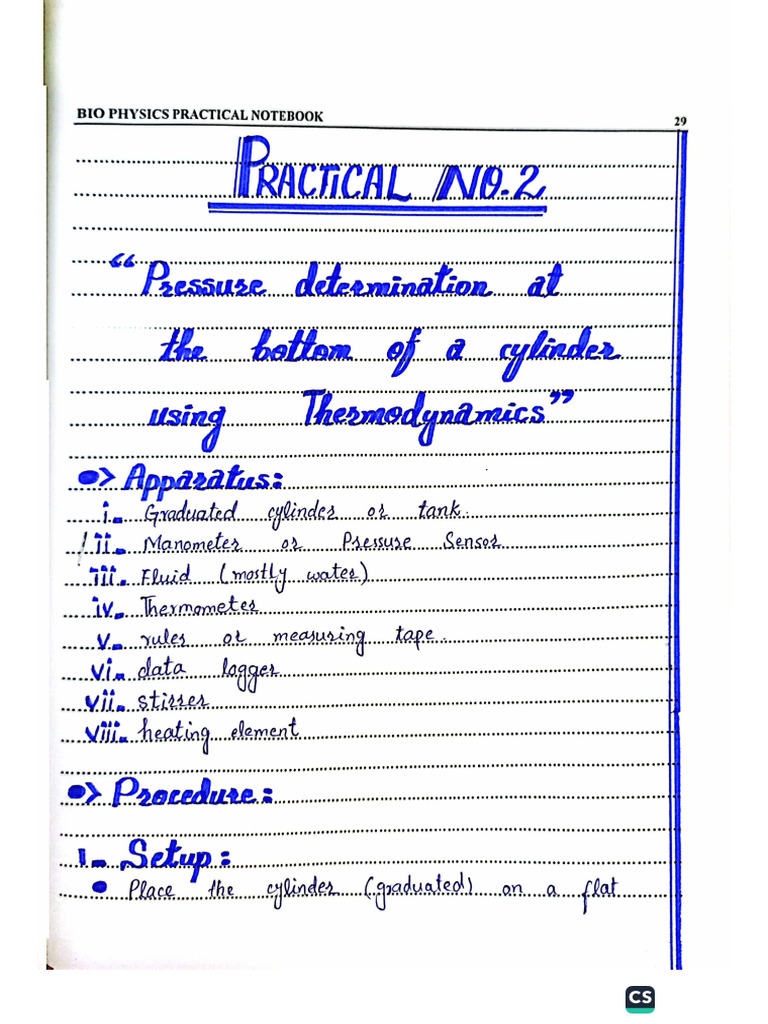 BIO PHYSICS PRACTICAL NOTEBOOK 29
PRACTICAL NO.2
"Pressure determination at
the bottom of a cylinder
using Thermodynamics"
Apparatus:
i. Graduated cylinder or tank.
ii. Manometer or Pressure Sensor
iii. Fluid (mostly water)
iv. Thermometer
v. ruler or measuring tape.
vi. data logger
vii. stirrer
viii. heating element
Procedure:
1. Setup:
Place the cylinder (graduated) on a flat
CS